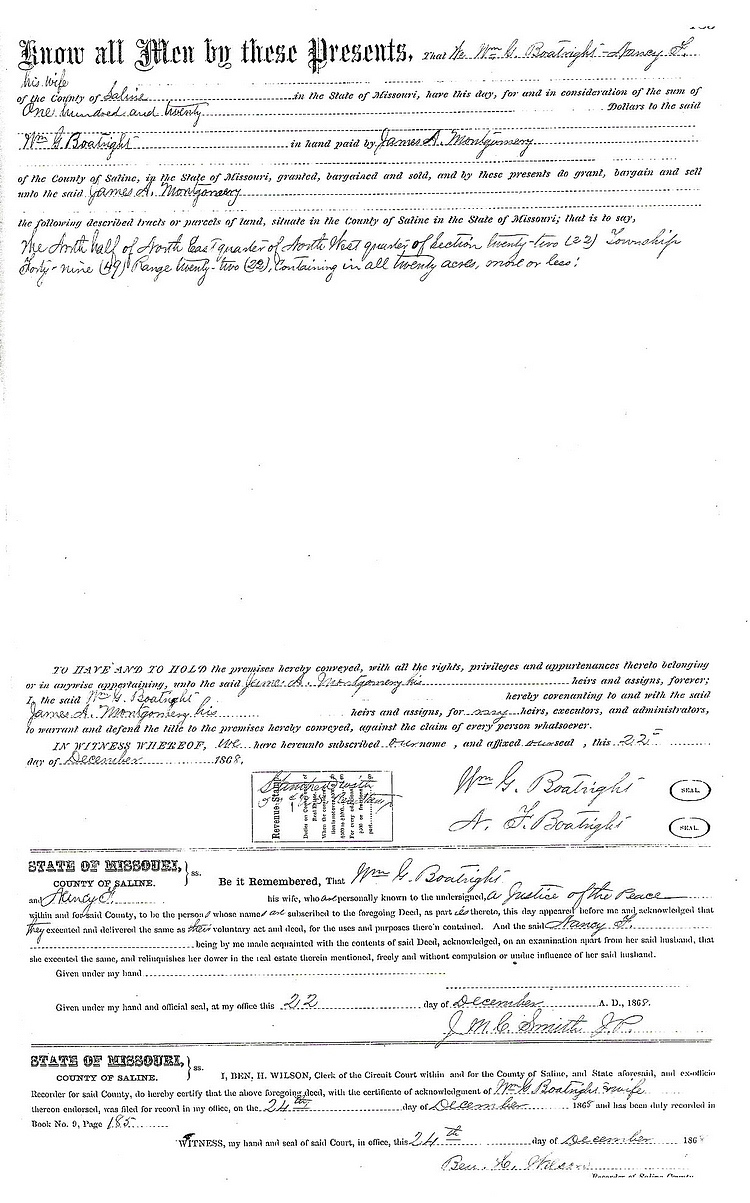 Know all Men by these Presents, That We Wm G. Boatright - Nancy F.
his wife
of the County of Saline in the State of Missouri, have this day, for and in consideration of the sum of
One hundred and twenty Dollars to the said
Wm G Boatright in hand paid by James A. Montgomery
of the County of Saline, in the State of Missouri, granted, bargained and sold, and by these presents do grant, bargain and sell
unto the said James A. Montgomery
the following described tracts or parcels of land, situate in the County of Saline in the State of Missouri; that is to say,
The North half of North East quarter of North West quarter of Section twenty-two (22) Township
Forty-nine (49) Range twenty-two (22), Containing in all twenty acres, more or less:
TO HAVE AND TO HOLD the premises hereby conveyed, with all the rights, privileges and appurtenances thereto belonging
or in anywise appertaining, unto the said James A. Montgomery his heirs and assigns, forever;
I, the said Wm G. Boatright hereby covenanting to and with the said
James A. Montgomery his heirs and assigns, for my heirs, executors, and administrators,
to warrant and defend the title to the premises hereby conveyed, against the claim of every person whatsoever.
IN WITNESS WHEREOF, We have hereunto subscribed our name , and affixed our seal , this 22
day of December 1868.
Revenue Stamp
Wm G. Boatright SEAL.
N. F. Boatright SEAL.
STATE OF MISSOURI, } ss.
COUNTY OF SALINE.
Be it Remembered, That Wm G. Boatright
and Nancy F. his wife, who are personally known to the undersigned, a Justice of the Peace
within and for said County, to be the persons whose names are subscribed to the foregoing Deed, as part ies thereto, this day appeared before me and acknowledged that
they executed and delivered the same as their voluntary act and deed, for the uses and purposes there'n contained. And the said Nancy F.
being by me made acquainted with the contents of said Deed, acknowledged, on an examination apart from her said husband, that
she executed the same, and relinquishes her dower in the real estate therein mentioned, freely and without compulsion or undue influence of her said husband.
Given under my hand
Given under my hand and official seal, at my office this 22 day of December A. D., 1868.
J. M. C. Smith J.P.
STATE OF MISSOURI, } ss.
COUNTY OF SALINE.
I, BEN. H. WILSON, Clerk of the Circuit Court within and for the County of Saline, and State aforesaid, and ex-officio
Recorder for said County, do hereby certify that the above foregoing deed, with the certificate of acknowledgment of Wm G Boatright & wife
thereon endorsed, was filed for record in my office, on the 24th day of December 1868 and has been duly recorded in
Book No. 9, Page 185
WITNESS, my hand and seal of said Court, in office, this 24th day of December 186
Ben. H. Wilson
Recorder of Saline County